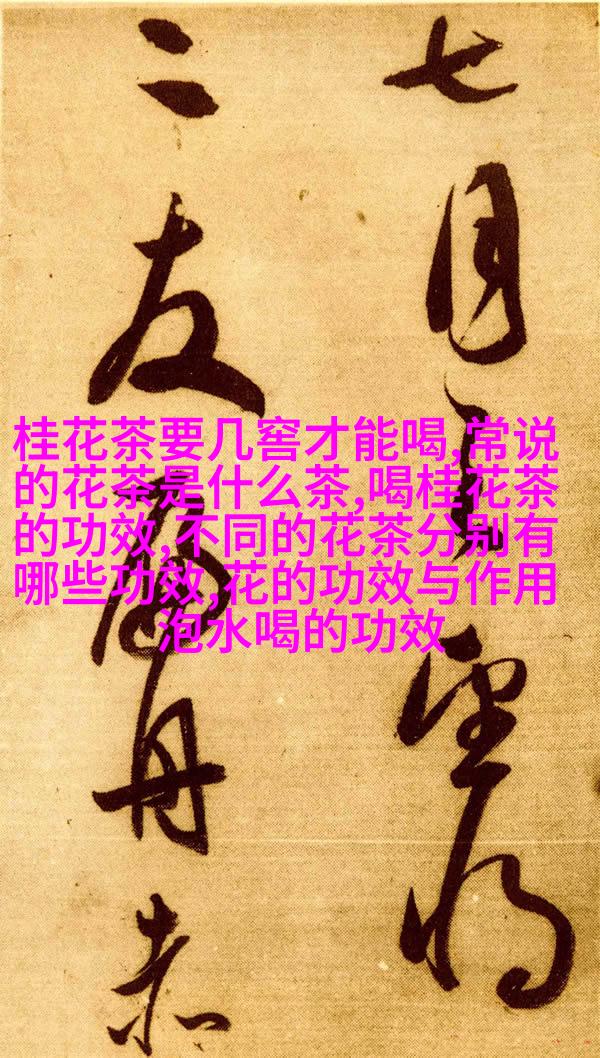 桂花茶要几窖才能喝,常说
的花茶是什么茶,喝桂花茶
的功效,不同的花茶分别有
哪些功效,花的功效与作用
泡水喝的功效
七月望将
二友舟赤